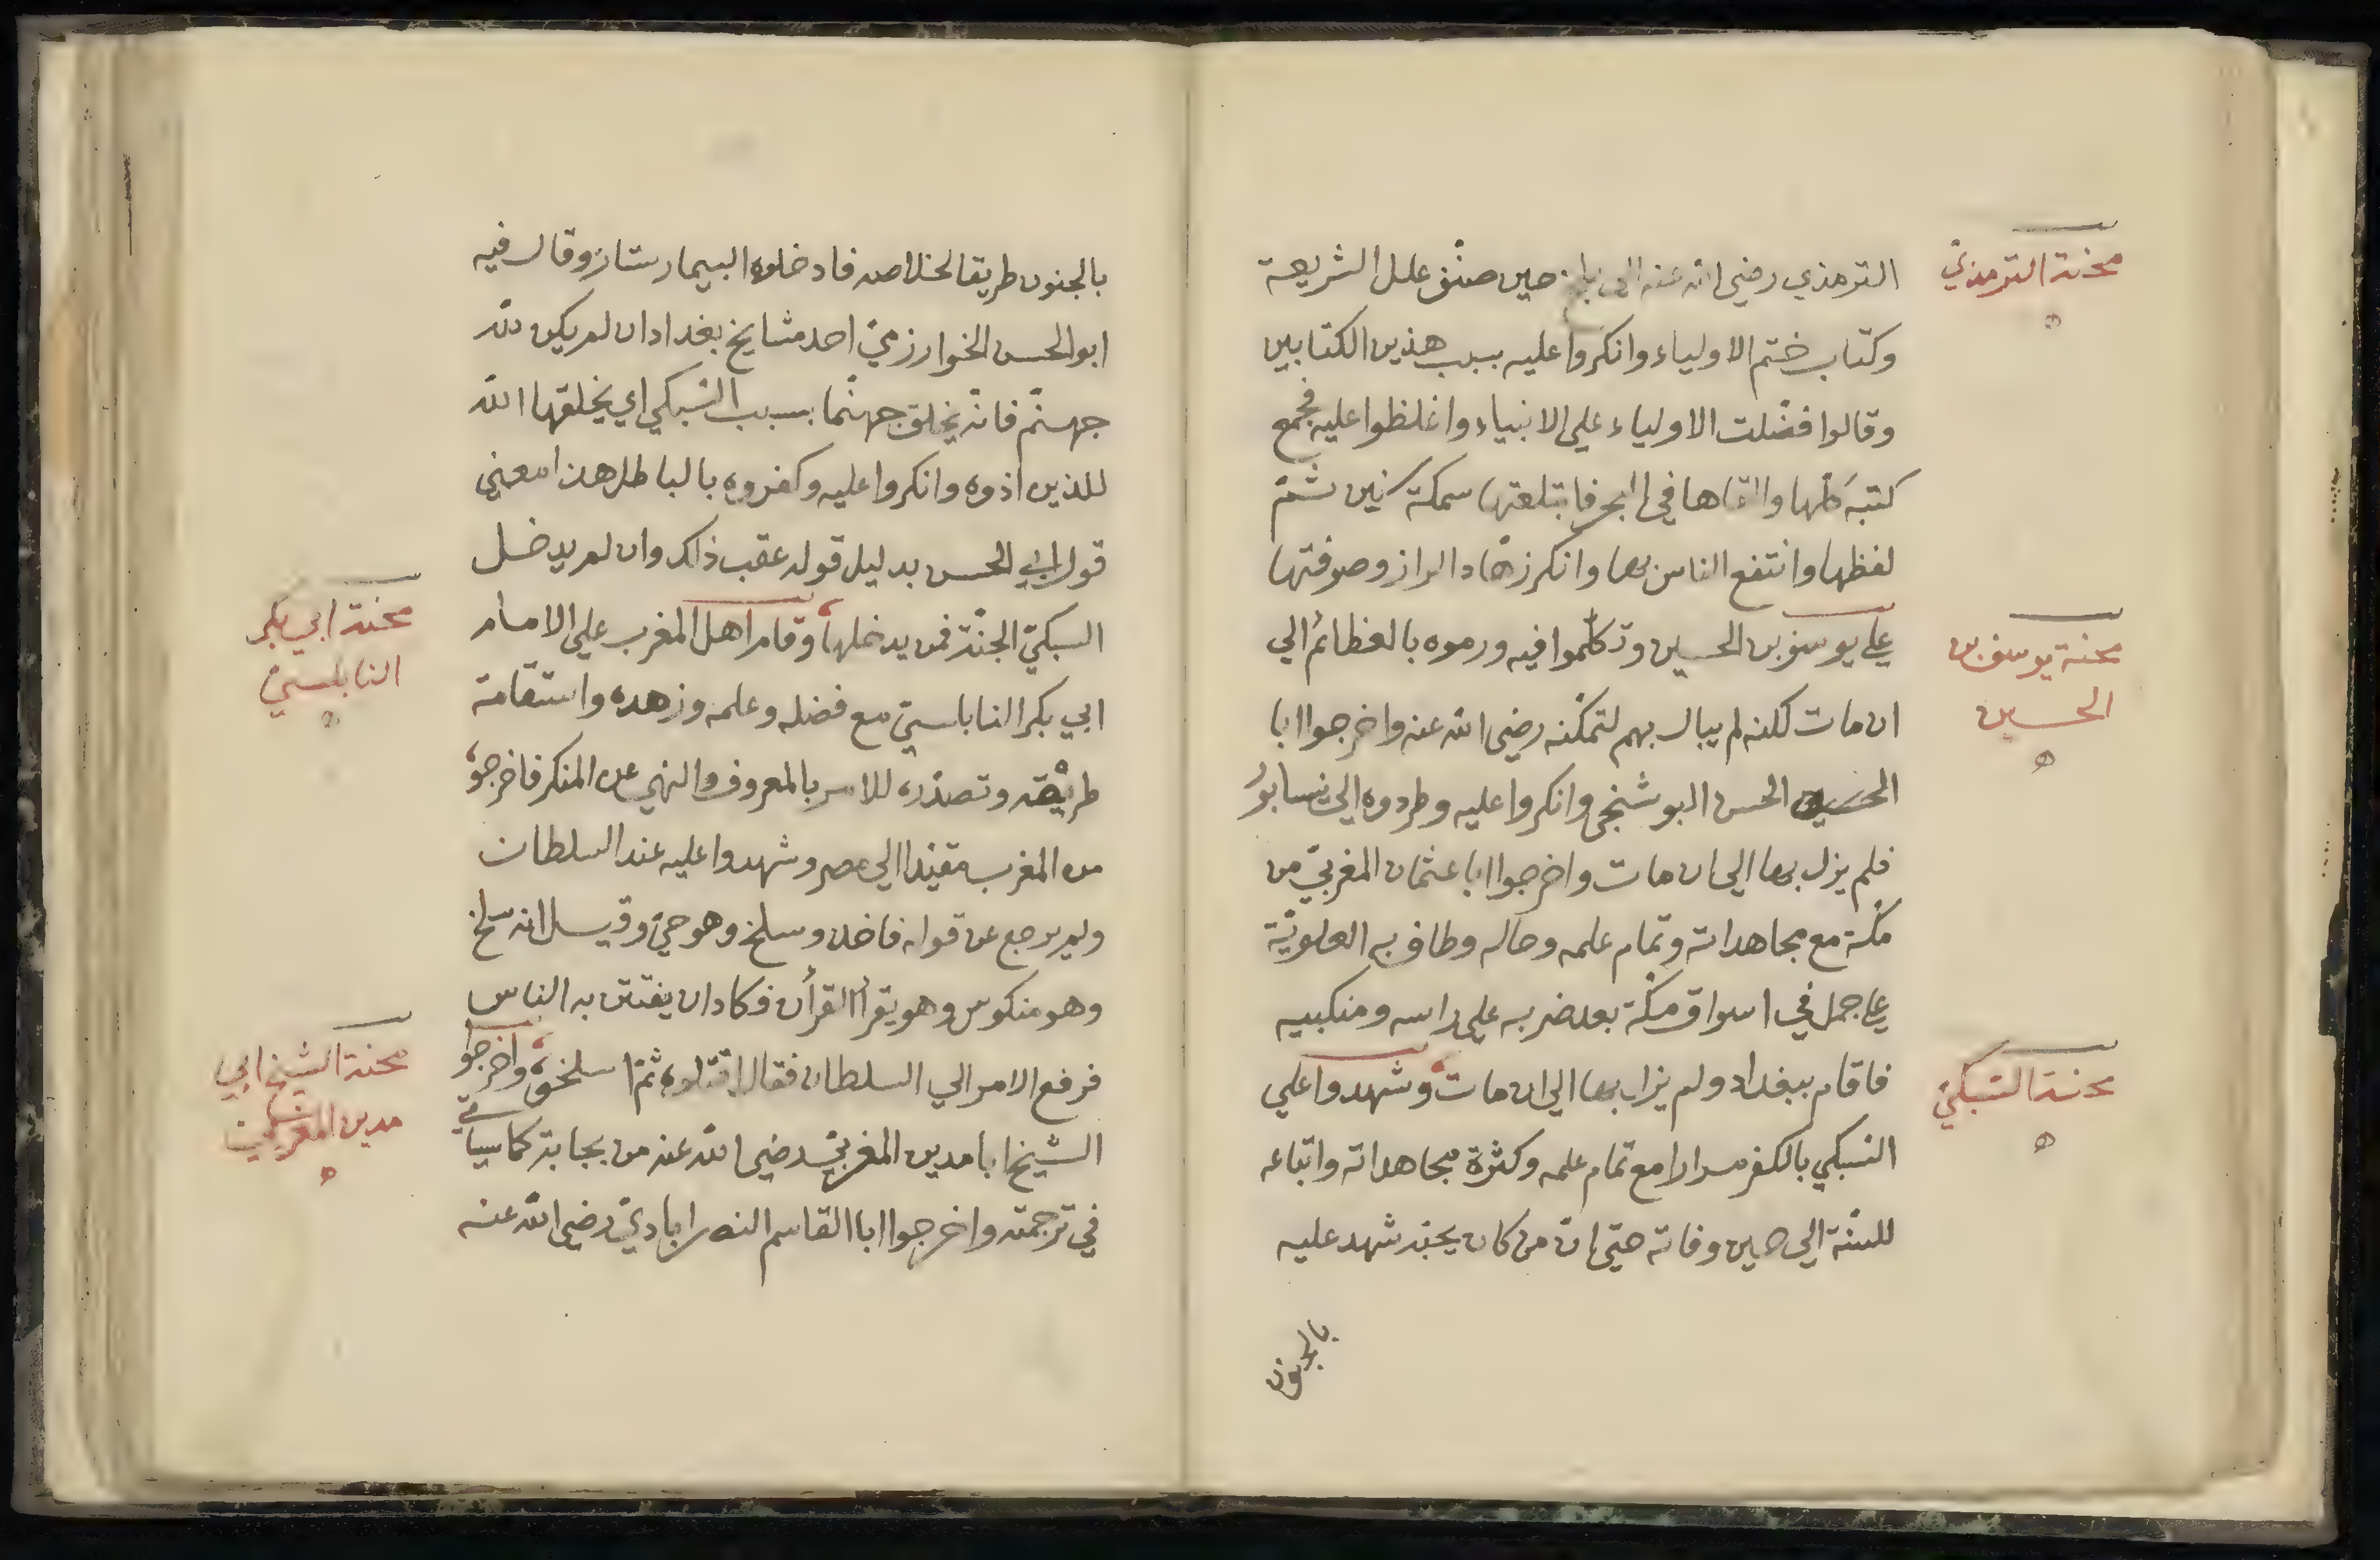 محنة الترمذيّ
الترمذي رضي الله عنه الى بلخ حين صنّف علل الشريعة
وكتاب ختم الاولياء وانكروا عليه بسبب هذين الكتابين
وقالوا فضّلت الاولياء علي الانبياء واغلظوا عليه فجمع
كتبه كلّها والقاها في البحر فابتلعتها سمكة سنين ثمّ
لفظها وانتفع الناس بها وانكر زهّاد الراز وصوفتها
علي يوسف بن الحسين وتكلّموا فيه ورموه بالعظائم الي
محنة يوسف بن
الحسين
ان مات لكنه لم يبال بهم لتمكّنه رضي الله عنه واخرجوا ابا
الحسن البوشنجي وانكروا عليه وطردوه الي نيسابور
فلم يزل بها الي ان مات واخرجوا ابا عثمان المغربيّ من
مكّة مع مجاهداته وتمام علمه وحاله وطاف به العلويّة
علي جمل في اسواق مكّة بعد ضربه علي راسه ومنكبيه
فاقام ببغداد ولم يزل بها الي ان مات وشهدوا علي
محنة الشبكيّ
السبكي بالكفر مرارا مع تمام علمه وكثرة مجاهداته واتباعه
للسنّة الي حين وفاته حتي انّ من كان يحبّه شهد عليه
بالجنون
بالجنون طريقا لخلاصه فادخلوه البيمارستان وقال فيه
ابو الحسن الخوارزميّ احد مشايخ بغداد ان لم يكن للّه
جهنّم فانّه يخلق جهنّما بسبب السبكي اي يخلقها اللّه
للذين اذوه وانكروا عليه وكفروه بالباطل هذا معني
قول ابي الحسن بدليل قوله عقب ذلك وان لم يدخل
السبكيّ الجنّة فمن يدخلها وقام اهل المغرب علي الامام
محنة ابي بكر
النابلسيّ
ابي بكر النابلسيّ مع فضله وعلمه وزهده واستقامة
طريقه وتصدّره للامر بالمعروف والنهي عن المنكر فاخرجوه
من المغرب مقيّدا الي مصر وشهدوا عليه عند السلطان
ولم يرجع عن قوله فاخذ وسلخ وهو حيّ وقيل انه سلخ
وهو منكوس وهو يقرأ القرأن فكاد ان يفتتن به الناس
فرفع الامر الي السلطان فقال اقتلوه ثمّ اسلخوه واخرجوا
محنة الشيخ ابي
مدين المغربيّ
الشيخ ابا مدين المغربيّ رضي اللّه عنه من بجاية كما سياتي
في ترجمته واخرجوا ابا القاسم النصراباديّ رضي اللّه عنه